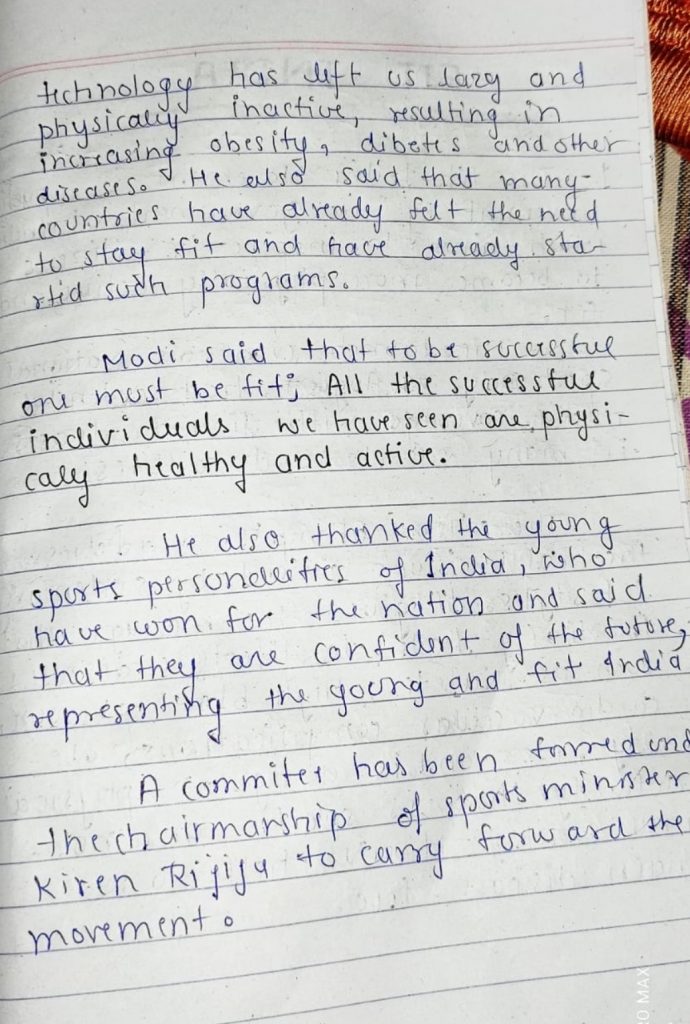 technology has left us lazy and
physically inactive, resulting in
increasing obesity, dibetes and other
diseases. He also said that many-
countries have already felt the need
to stay fit and have already sta-
rted such programs.
Modi said that to be successful
one must be fit; All the successful
individuals we have seen are physi-
caly healthy and active.
He also thanked the young
sports personalities of India, who
have won for the nation and said
that they are confident of the future,
representing the young and fit India
A commitee has been formed und
the chairmarship of sports minister
Kiren Rijiju to carry forward the
movement.
O MAX